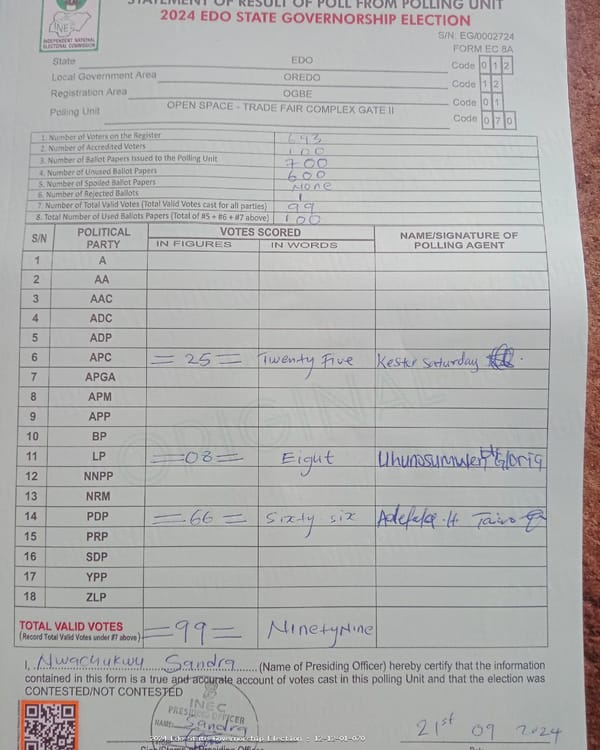 STATEMENT OF RESULT OF POLL FROM POLLING UNIT
2024 EDO STATE GOVERNORSHIP ELECTION
INEC
INDEPENDENT NATIONAL
ELECTORAL COMMISSION
S/N: EG/0002724
FORM EC 8A
State EDO Code 0 1 2
Local Government Area OREDO Code 1 2
Registration Area OGBE Code 0 1
Polling Unit OPEN SPACE - TRADE FAIR COMPLEX GATE II Code 0 7 0
1. Number of Voters on the Register 693
2. Number of Accredited Voters 100
3. Number of Ballot Papers Issued to the Polling Unit 700
4. Number of Unused Ballot Papers 600
5. Number of Spoiled Ballot Papers None
6. Number of Rejected Ballots 1
7. Number of Total Valid Votes (Total Valid Votes cast for all parties) 99
8. Total Number of Used Ballots Papers (Total of #5 + #6 + #7 above) 100
S/N POLITICAL PARTY VOTES SCORED NAME/SIGNATURE OF POLLING AGENT
IN FIGURES IN WORDS
1 A
2 AA
3 AAC
4 ADC
5 ADP
6 APC =25= Twenty Five Kester Saturday
7 APGA
8 APM
9 APP
10 BP
11 LP =08= Eigut
12 NNPP
13 NRM
14 PDP =66= Sixty six Taiwo
15 PRP
16 SDP
17 YPP
18 ZLP
ORIGINAL
TOTAL VALID VOTES =99= NinetyNine
(Record Total Valid Votes under #7 above)
I, Nwachukwu Sandra (Name of Presiding Officer) hereby certify that the information
contained in this form is a true and accurate account of votes cast in this polling Unit and that the election was
CONTESTED/NOT CONTESTED
INEC
PRESIDING OFFICER
NAME: Sandra
21st 09 2024
2024 Edo State Governorship Election - 12-12-01-070